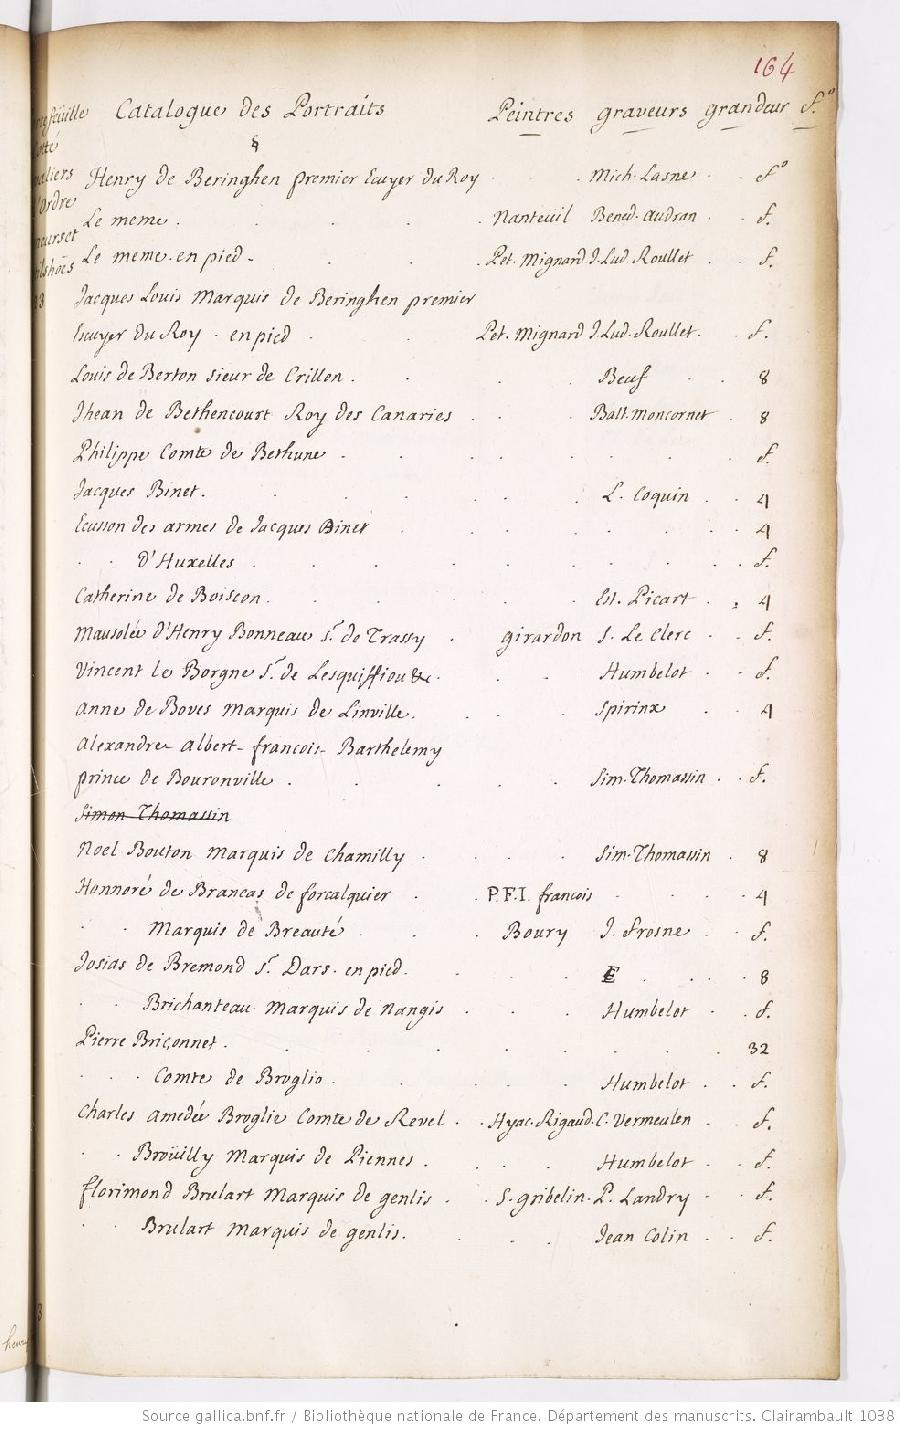 164
Catalogue des Portraits Peintres graveurs grandeur f.º
§
Henry de Beringhen premier Ecuyer du Roy . . Mich. Lasne . . fº
Le meme . . . . . Nanteüil Bened. Audran . . f.
Le meme en pied . . . . Pet. Mignard J. Lud Roullet . f.
Jacques Louis Marquis de Beringhen premier
Ecuyer du Roy . en pied . . Pet. Mignard J. Lud. Roullet . f.
Louis de Berton sieur de Crillon . . . . Beuf . . 8
Jhean de Bethencourt Roy des Canaries . . . Balt. Moncornet . 8
Philippe Comte de Bethune . . . . . . . . f.
Jacques Binet . . . . . . . L. Coquin . . 4
Ecusson des armes de Jacques Binet . . . . . . . 4
. . D'Huxelles . . . . . . . . . f.
Catherine de Boiscon . . . . . . Est. Picart . . 4
Mausolée d'Henry Bonneau sr. de Trassy . girardon S. Le Clerc . . f.
Vincent le Borgne Sr. de Lesquiffiou &c. . . Humbelot . . f.
Anne de Boves Marquis de Linville . . . Spirinx . . 4
Alexandre Albert-françois- Barthelemy
prince de Bouronville . . . . . Sim. Thomassin . . f.
Simon Thomassin
Noel Bouton Marquis de Chamilly . . . Sim. Thomassin . 8
Honnoré de Brancas de forcalquier . . P.F.I. francois . . . . 4
. . Marquis de Breauté . . . Boury J. Frosne . . f.
Josias de Bremond sr. Dars. en pied . . . . . . 8
. . Brichanteau Marquis de Nangis . . . Humbelot . . f.
Pierre Briçonnet . . . . . . . . . 32
. . . Comte de Broglio . . . . . Humbelot . . f.
Charles Amedée Broglie Comte de Revel . . Hyac. Rigaud. C. Vermeulen . f.
. . Broüilly Marquis de Piennes . . . . Humbelot . . f.
florimond Brulart Marquis de genlis . . S. gribelin. P. Landry . . f.
. . Brulart Marquis de genlis . . . . Jean Colin . . f.
Source gallica.bnf.fr / Bibliothèque nationale de France. Département des manuscrits. Clairambault 1038